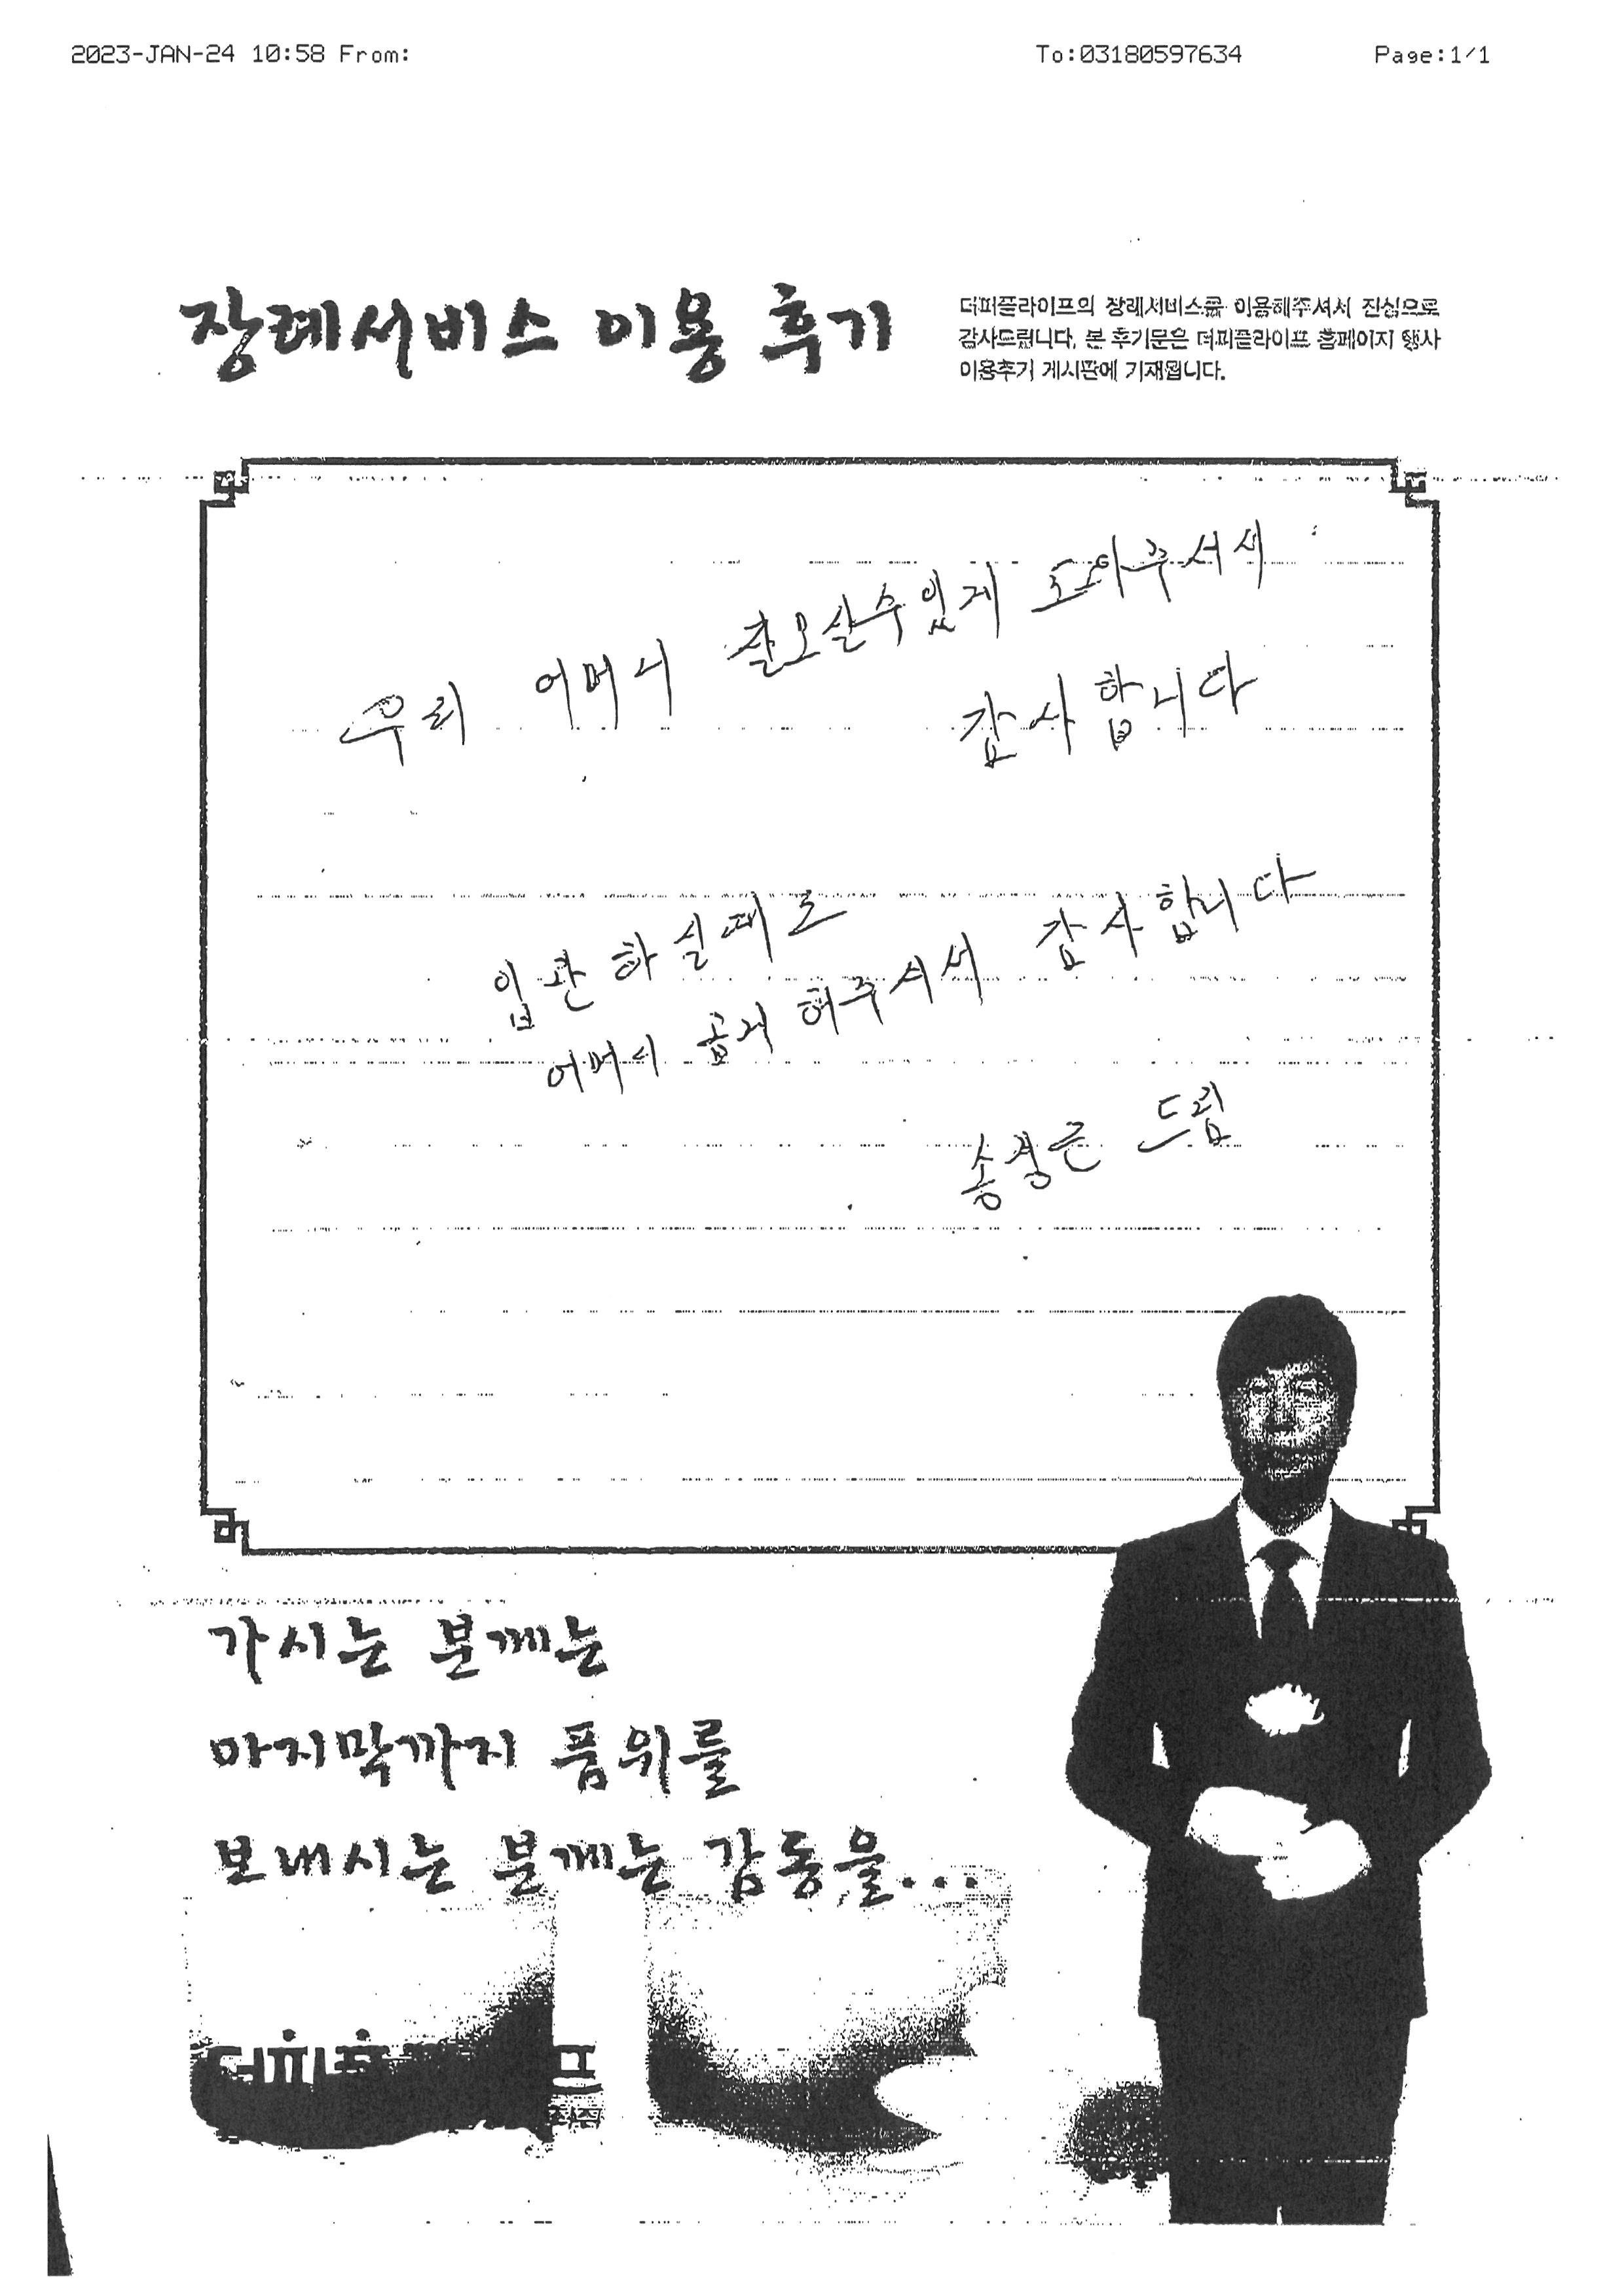 2023-JAN-24 10:58 From: To:03180597634 Page:1/1
장례서비스 이용 후기
더피플라이프의 장례서비스를 이용해주셔서 진심으로
감사드립니다. 본 후기문은 더피플라이프 홈페이지 행사
이용후기 게시판에 기재됩니다.
우리 어머니 잘모실수있게 도와주셔서
감사합니다
입관하실때도
어머니 곱게 해주셔서 감사합니다
송경근 드림
가시는 분께는
마지막까지 품위를
보내시는 분께는 감동을...